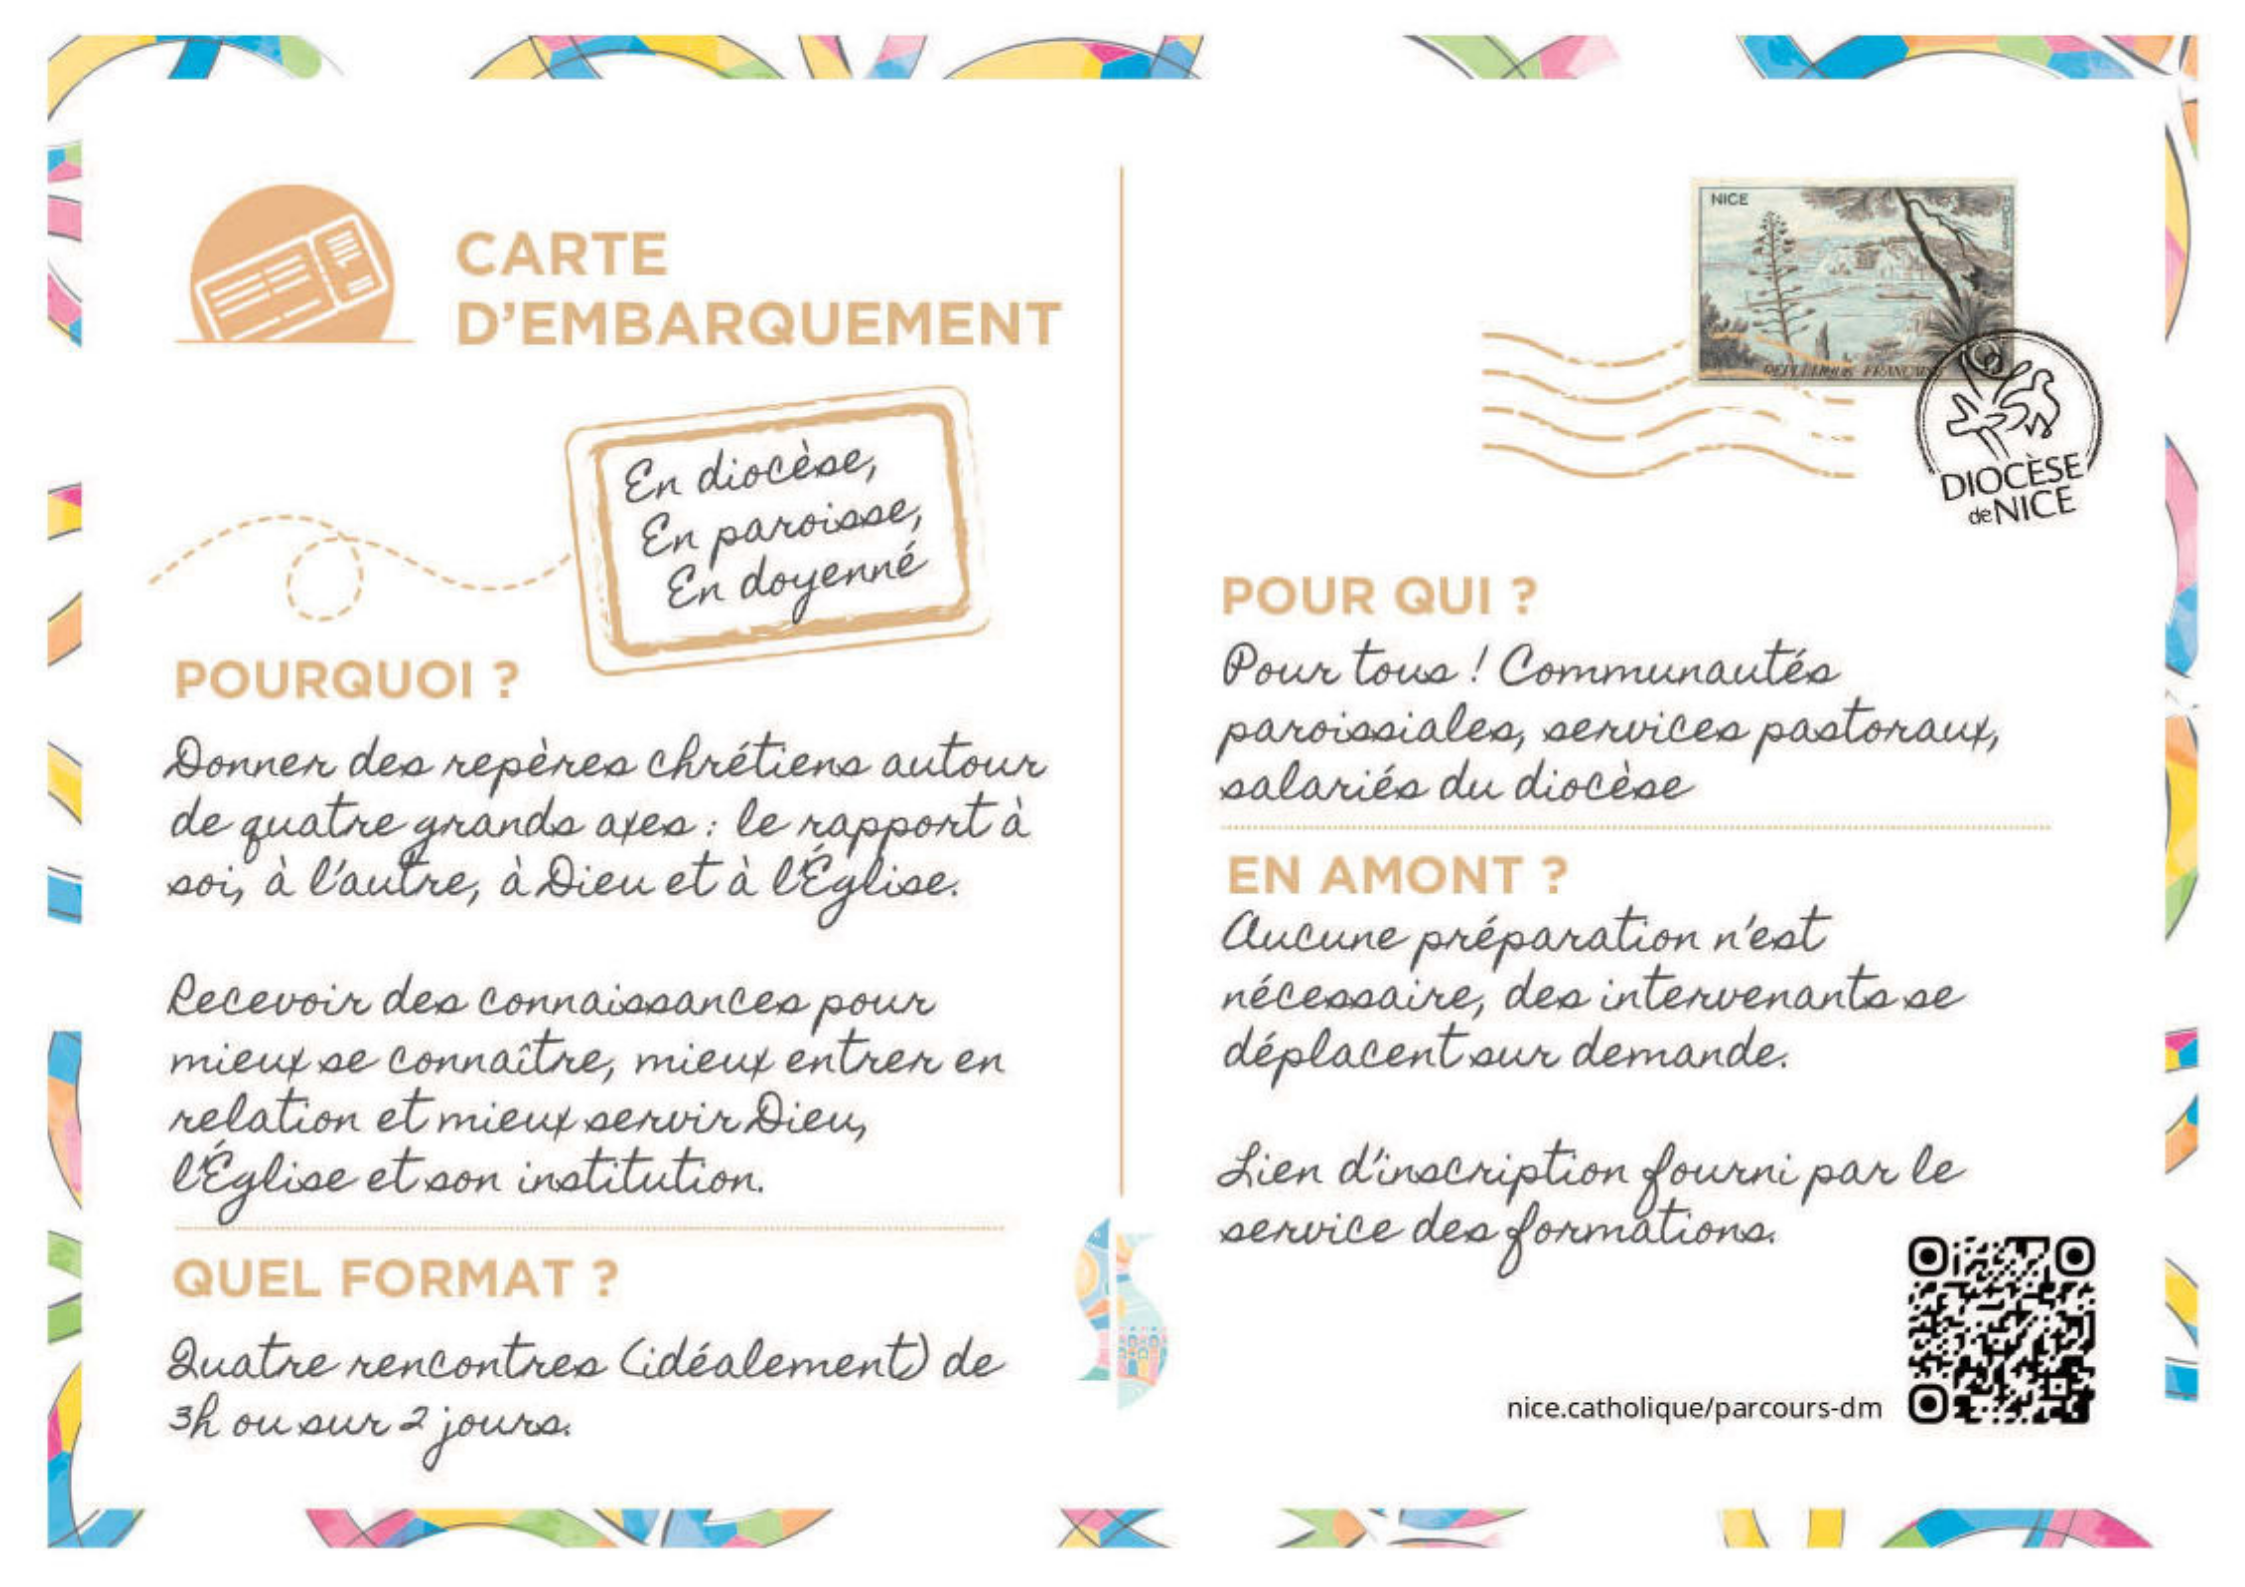 CARTE
D'EMBARQUEMENT
En diocèse,
En paroisse,
En doyenné
POURQUOI ?
Donner des repères chrétiens autour
de quatre grands axes : le rapport à
soi, à l'autre, à Dieu et à l'Église.
Recevoir des connaissances pour
mieux se connaître, mieux entrer en
relation et mieux servir Dieu,
l'Église et son institution.
QUEL FORMAT ?
Quatre rencontres (idéalement) de
3h ou sur 2 jours.
NICE
REPUBLIQUE FRANCAISE
DIOCÈSE
de NICE
POUR QUI ?
Pour tous ! Communautés
paroissiales, services pastoraux,
salariés du diocèse
EN AMONT ?
Aucune préparation n'est
nécessaire, des intervenants se
déplacent sur demande.
Lien d'inscription fourni par le
service des formations.
nice.catholique/parcours-dm